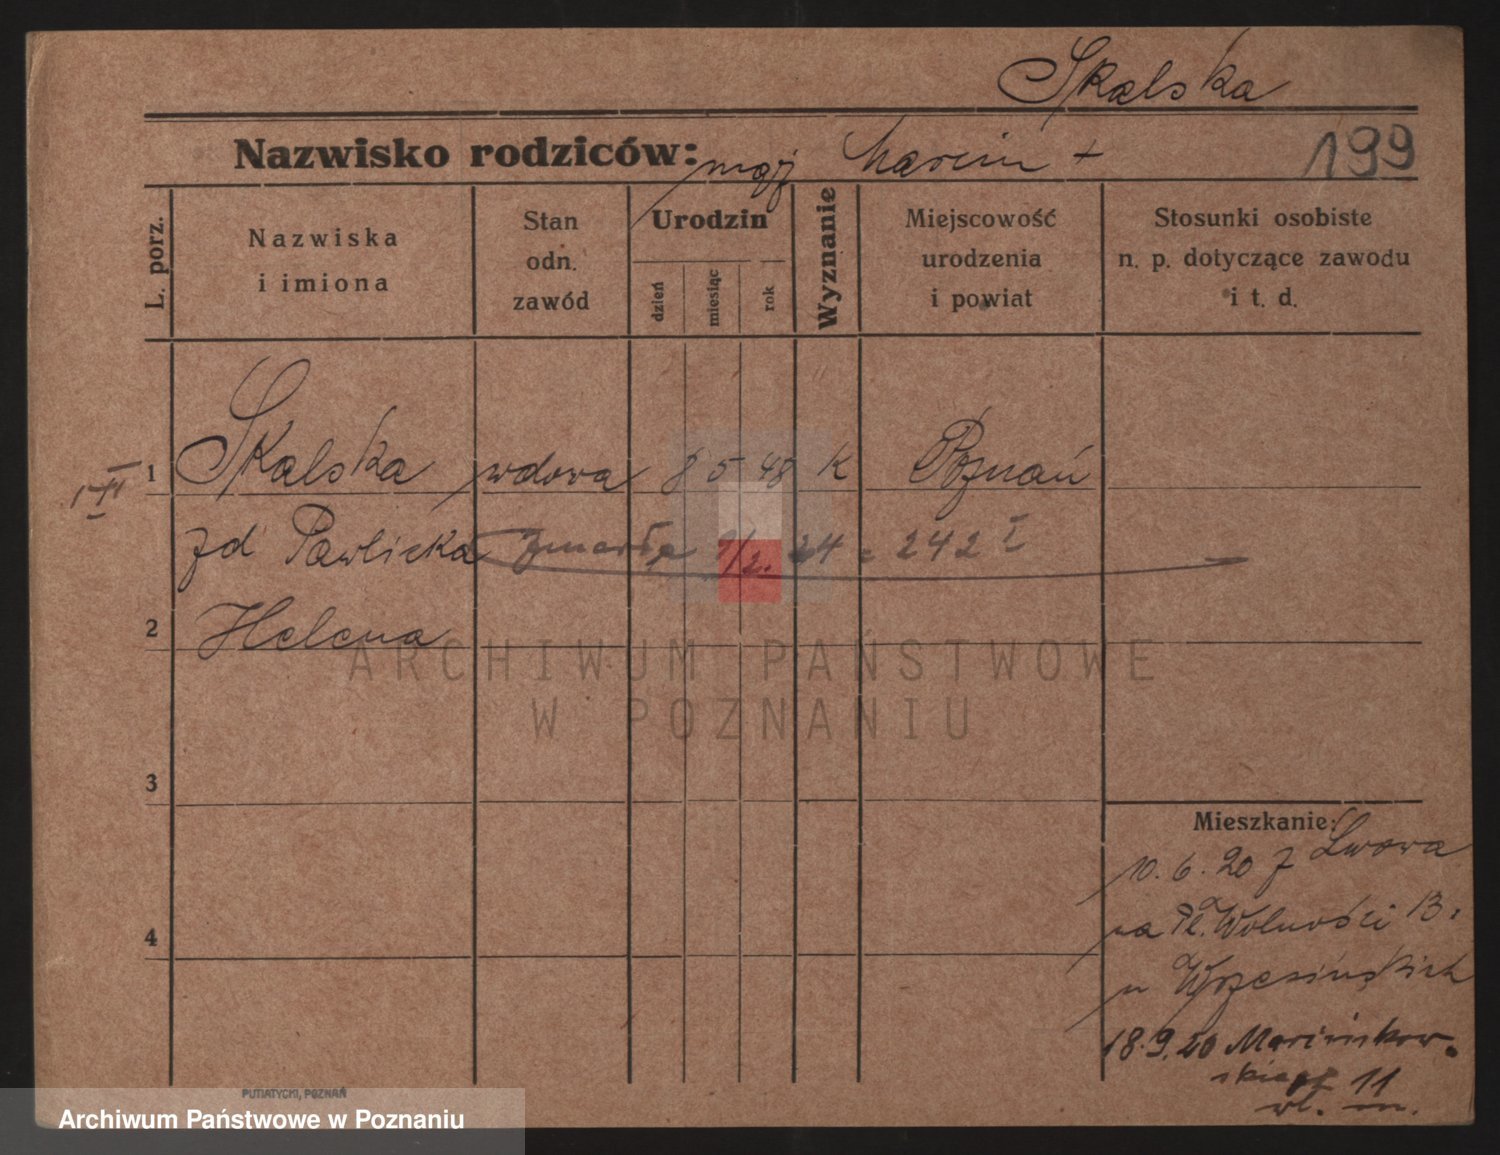 Skalska
Nazwisko rodziców: mąż Marcin +
199
L. porz.
Nazwiska
i imiona
Stan
odn.
zawód
Urodzin
dzień
miesiąc
rok
Wyznanie
Miejscowość
urodzenia
i powiat
Stosunki osobiste
n. p. dotyczące zawodu
i t. d.
1 Skalska wdowa 8 5 48 K Poznań
zd Pawlicka zmarła 1/2. 24 = 242 I
2 Helena
ARCHIWUM PAŃSTWOWE
W POZNANIU
3
Mieszkanie:
10. 6. 20 z Lwowa
na Pl. Wolności 13.
u Wrzesińskich
4
18. 9. 20 Marcinkow-
skiego 11
wł. m.
PUTIATYCKI, POZNAŃ
Archiwum Państwowe w Poznaniu